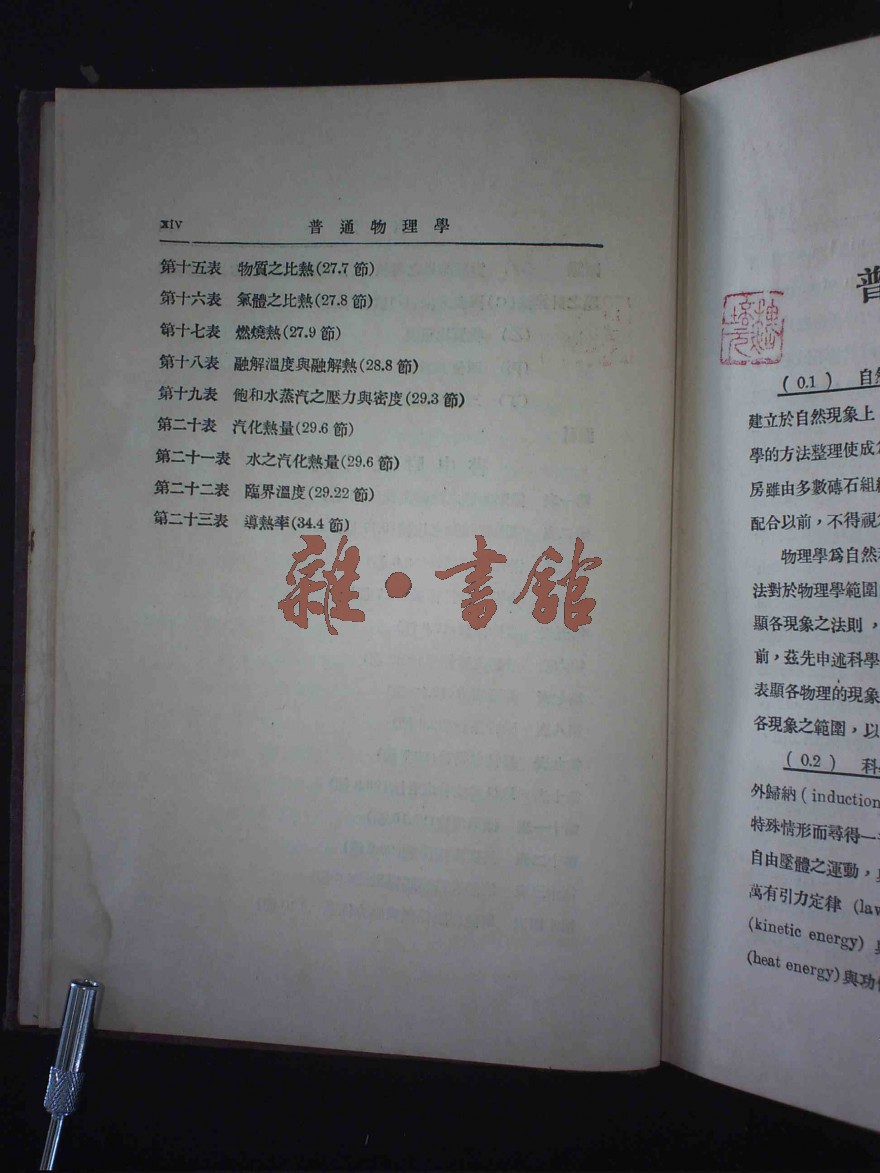 xiv 普通物理學
第十五表 物質之比熱(27.7 節)
第十六表 氣體之比熱(27.8 節)
第十七表 燃燒熱(27.9 節)
第十八表 融解溫度與融解熱(28.8 節)
第十九表 飽和水蒸汽之壓力與密度(29.3 節)
第二十表 汽化熱量(29.6 節)
第二十一表 水之汽化熱量(29.6 節)
第二十二表 臨界溫度(29.22 節)
第二十三表 導熱率(34.4 節)
雜·書館
普
(0.1) 自然
建立於自然現象上
學的方法整理使成
房雖由多數磚石組
配合以前，不得視
物理學爲自然
法對於物理學範圍
顯各現象之法則，
前，茲先申述科學
表顯各物理的現象
各現象之範圍，以
(0.2) 科
外歸納(induction
特殊情形而尋得一
自由墜體之運動，
萬有引力定律 (law
(kinetic energy)
(heat energy)與功